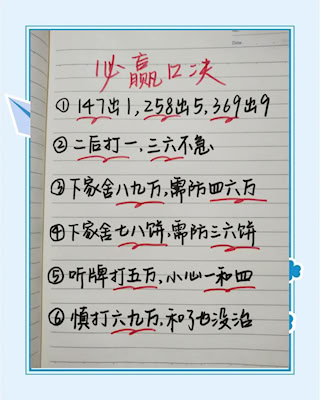 必赢口决
①147出1,258出5,369出9
②二后打一,三六不急
③下家舍八九万,需防四六万
④下家舍七八饼,需防三六饼
⑤听牌打五万,小心一和四
⑥慎打六九万,和了也没治